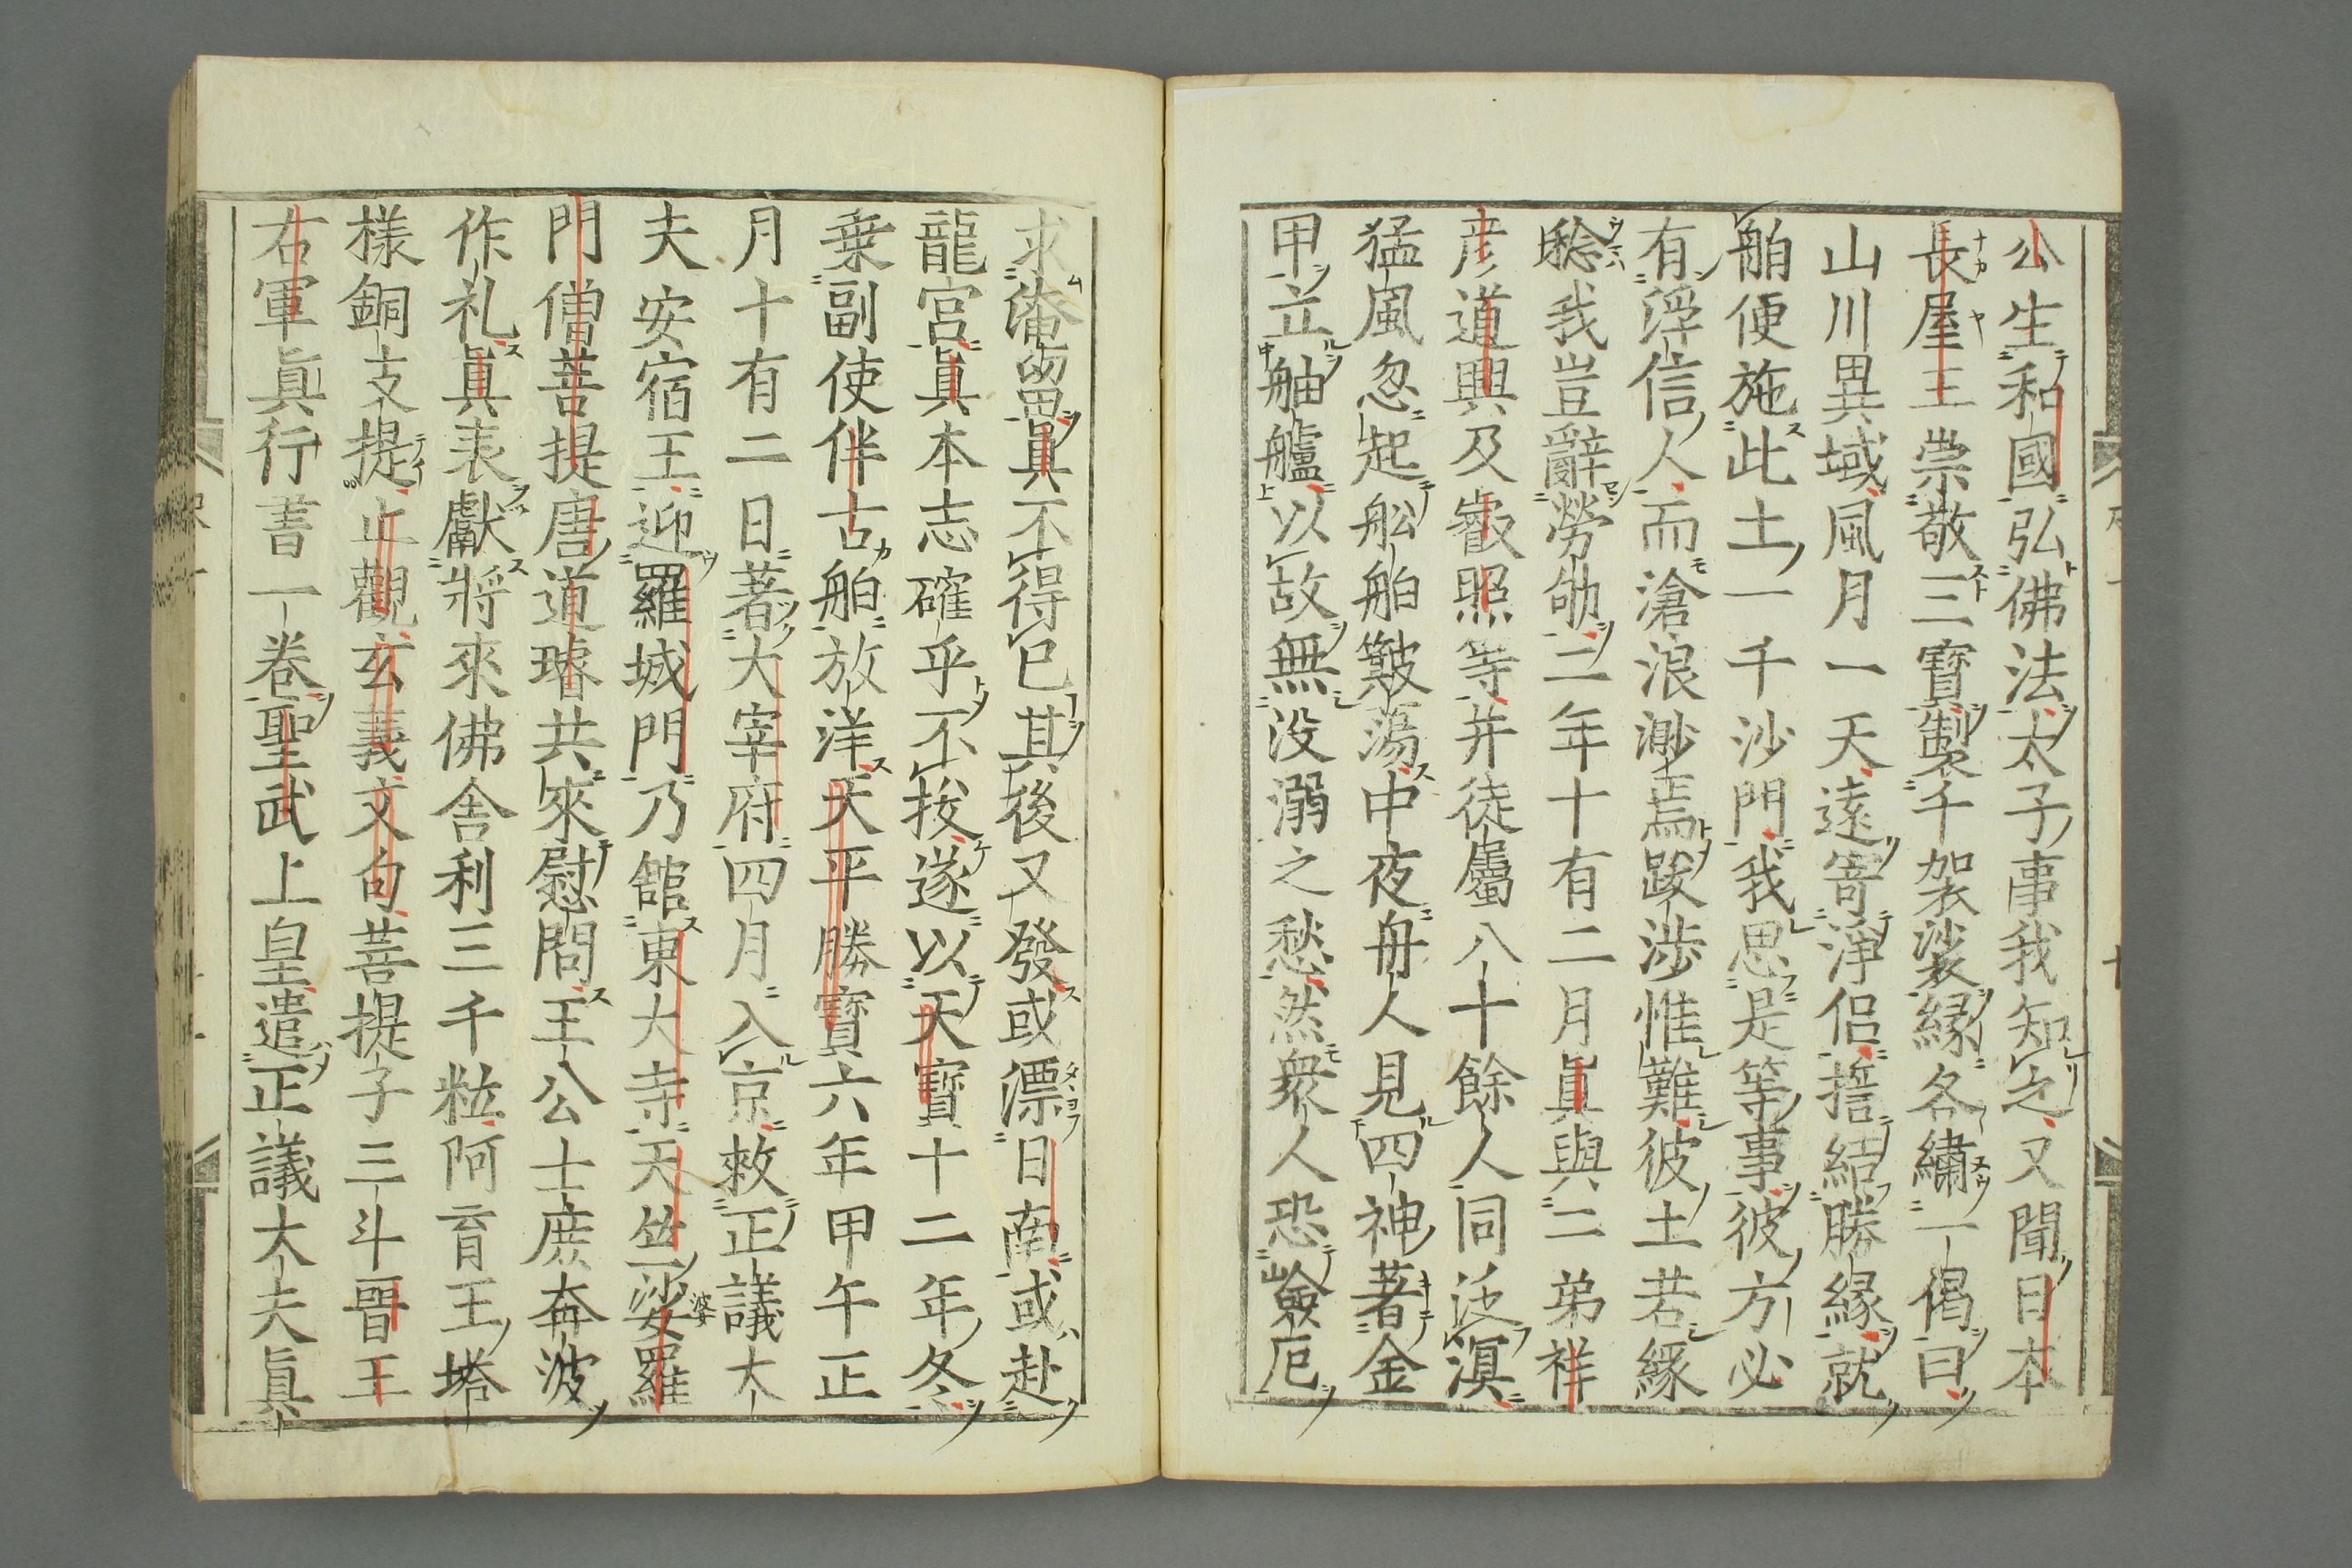 公生和國弘佛法太子事我知之又聞日本
長屋王崇敬三寶製千袈裟緣各繡一偈曰
山川異域風月一天遠寄淨侶誓結勝緣就
舶便施此土一千沙門我思是等事彼方必
有浮信人而滄浪渺焉跋涉惟難彼土若緣
稔我豈辭勞劬二年十有二月眞與二弟祥
彦道興及叡照等并徒屬八十餘人同泛溟
猛風忽起舩舶簸蕩中夜舟人見四神著金
甲立舳艫以故無没溺之愁然衆人恐嶮厄
求淹留眞不得已其後又發或漂日南或赴
龍宮眞本志確乎不拔遂以天寶十二年冬
乗副使伴古舶放洋天平勝寶六年甲午正
月十有二日著大宰府四月入京敕正議大
夫安宿王迎羅城門乃舘東大寺天竺娑羅
門僧菩提唐道璿共來慰問王公士庶奔波
作礼眞表獻將來佛舎利三千粒阿育王塔
樣銅支提止觀玄義文句菩提子三斗晉王
右軍眞行書一卷聖武上皇遣正議大夫眞